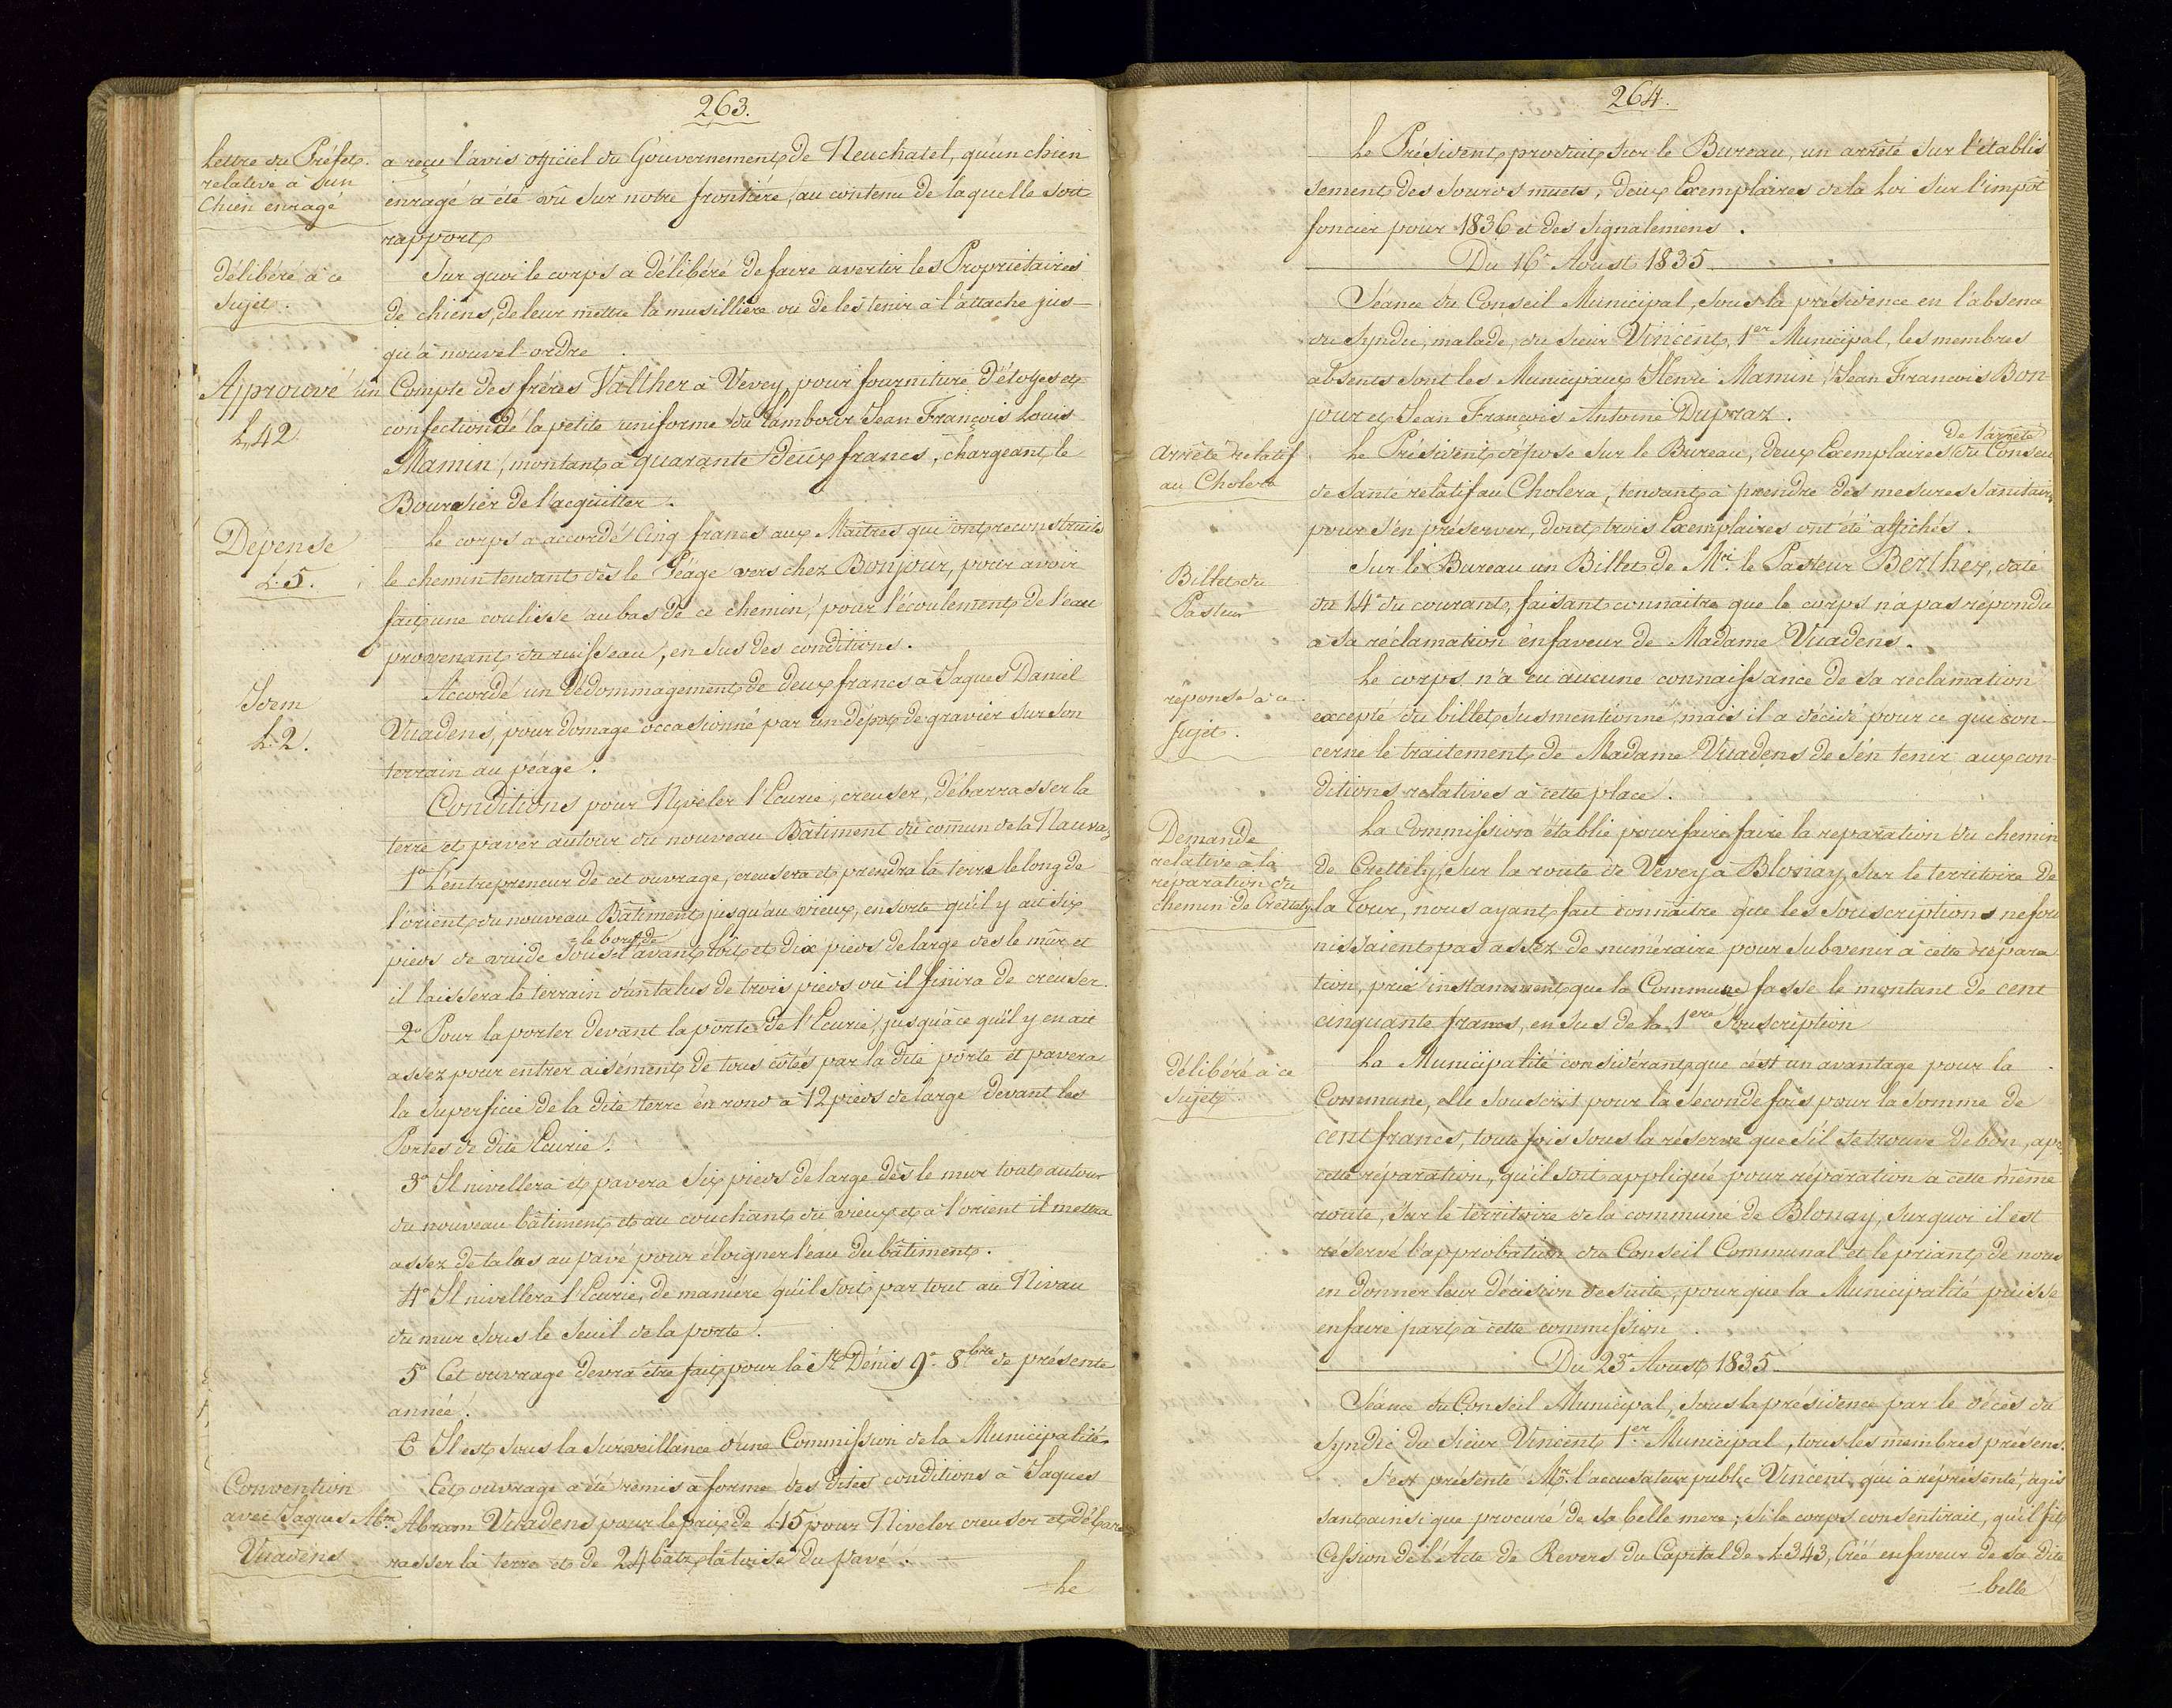 263.
Lettre du Préfet
relative à un
Chien enragé
a reçu l'avis officiel du Gouvernement de Neuchatel, qu'un chien
enragé a été vû sur notre frontiére, au contenu de laquelle soit
rapport
délibéré à ce
Sujet.
Sur quoi le corps a délibéré de faire avertir les Propriétaires
de chiens, de leur mettre la musilliére ou de les tenir à l'attache jus-
qu'à nouvel-ordre.
Approuvé un
L. 42
Compte des fréres Valther à Vevey, pour fourniture d'étofes et
confection de la petite uniforme du tambour Jean François Louis
Mamin, montant à quarante deux francs, chargeant le
Boursier de l'acquitter.
Dépense
L. 5.
Le corps a accordé Cinq francs aux Maîtres qui ont reconstruits
le chemin tendant dès le Péage vers chez Bonjour, pour avoir
fait une coulisse au bas de ce chemin, pour l'écoulement de l'eau
provenant du ruisseau, en sus des conditions.
Idem
L. 2.
Accordé un dédommagement de deux francs à Jaques Daniel
Vuadens, pour domage occasionné par un dépot de gravier sur son
terrain au péage.
Conditions pour Niveler l'Ecurie, creuser, débarrasser la
terre et paver autour du nouveau Bâtiment du comun de la Nauvaz
1° L'entrepreneur de cet ouvrage, creusera et prendra la terre le long de
l'orient du nouveau Bâtiment jusqu'au vieux, en sorte qu'il y ait six
pieds de vuide sous le bord de l'avant toit et dix pieds de large des le mur et
il laissera le terrain d'un talus de trois pieds où il finira de creuser.
2° Pour la porter devant la porte de l'Ecurie, jusqu'à ce qu'il y en ait
assez pour entrer aisément de tous côtés par la dite porte et pavera
la superficie de la dite terre en rond à 12 pieds de large devant les
Portes de dite Ecurie.
3° Il nivellera et pavera six pieds de large dès le mur tout autour
du nouveau bâtiment et au couchant du vieux et à l'orient il mettra
assez de talus au pavé pour éloigner l'eau du bâtiment.
4° Il nivellera l'Ecurie, de maniére qu'il soit par tout au Nivau
du mur sous le seuil de la porte.
5° Cet ouvrage devra être fait pour la St Dénis 9e 8bre de présente
année.
6 Il est sous la surveillance d'une Commission de la Municipalité
Convention
avec Jaques Abm
Vuadens
Cet ouvrage a été remis à forme des dites conditions à Jaques
Abram Vuadens pour le prix de L 15 pour Niveler creuser et débar
rasser la terre et de 24 batz la toise du Pavé.
Le
264.
Le Président produit sur le Bureau, un arrêté sur l'établis
sement des sourds muets, deux Exemplaires de la Loi sur l'impôt
foncier pour 1836 et des Signalemens.
Du 16e Aoust 1835.
Séance du Conseil Municipal, sous la présidence en l'absence
du Syndic, malade, du sieur Vincent, 1er Municipal, les membres
absents sont les Municipaux Henri Mamin, Jean Francois Bon-
jour et Jean François Antoine Dupraz.
Arrêté relatif
au Cholera
Le Président dépose sur le Bureau, deux Exemplaires de l'arrêté du Conseil
de Santé relatif au Cholera, tendant à prendre des mesures Sanitaires
pour s'en préserver, dont trois Exemplaires ont été affichés.
Billet du
Pasteur
Sur le Bureau un Billet de Mr. le Pasteur Berthex, daté
du 14e du courant, faisant connaitre que le corps n'a pas répondu
à sa réclamation en faveur de Madame Vuadens.
réponse à ce
Sujet.
Le corps n'a eu aucune connaissance de sa réclamation
excepté du billet susmentionné, mais il a décidé pour ce qui con-
cerne le traitement de Madame Vuadens de s'en tenir aux con-
ditions relatives à cette place.
Demande
relative à la
réparation du
chemin de Crettely
La Commission établie pour faire faire la reparation du chemin
de Crettely, sur la route de Vevey à Blonay, sur le territoire de
la Tour, nous ayant fait connaitre que les souscriptions ne four
nissaient pas assez de numéraire pour subvenir à cette répara
tion, prie instamment que la Commune fasse le montant de cent
cinquante francs, en sus de la 1ere Souscription
délibéré à ce
sujet
La Municipalité considérant que c'est un avantage pour la
Commune, elle souscris pour la séconde fois pour la somme de
cent francs, toute fois sous la réserve que s'il se trouve de bon, apr
cette réparation, qu'il soit appliqué pour réparation a cette même
route, sur le territoire de la commune de Blonay, sur quoi il est
réservé l'approbation du Conseil Communal et le priant de nous
en donner leur décision de suite, pour que la Municipalité puisse
en faire part à cette commission.
Du 23e Aoust 1835.
Séance du Conseil Municipal, sous la présidence par le décès du
Syndic du Sieur Vincent 1er Municipal, tous les membres présens.
S'est présenté Mr. l'accusateur public Vincent, qui a réprésenté, agis
sant ainsi que procuré de sa belle mere, si le corps consentirait, qu'il fit
Cession de l'Acte de Revers du Capital de L 343, Créé en faveur de sa dite
belle